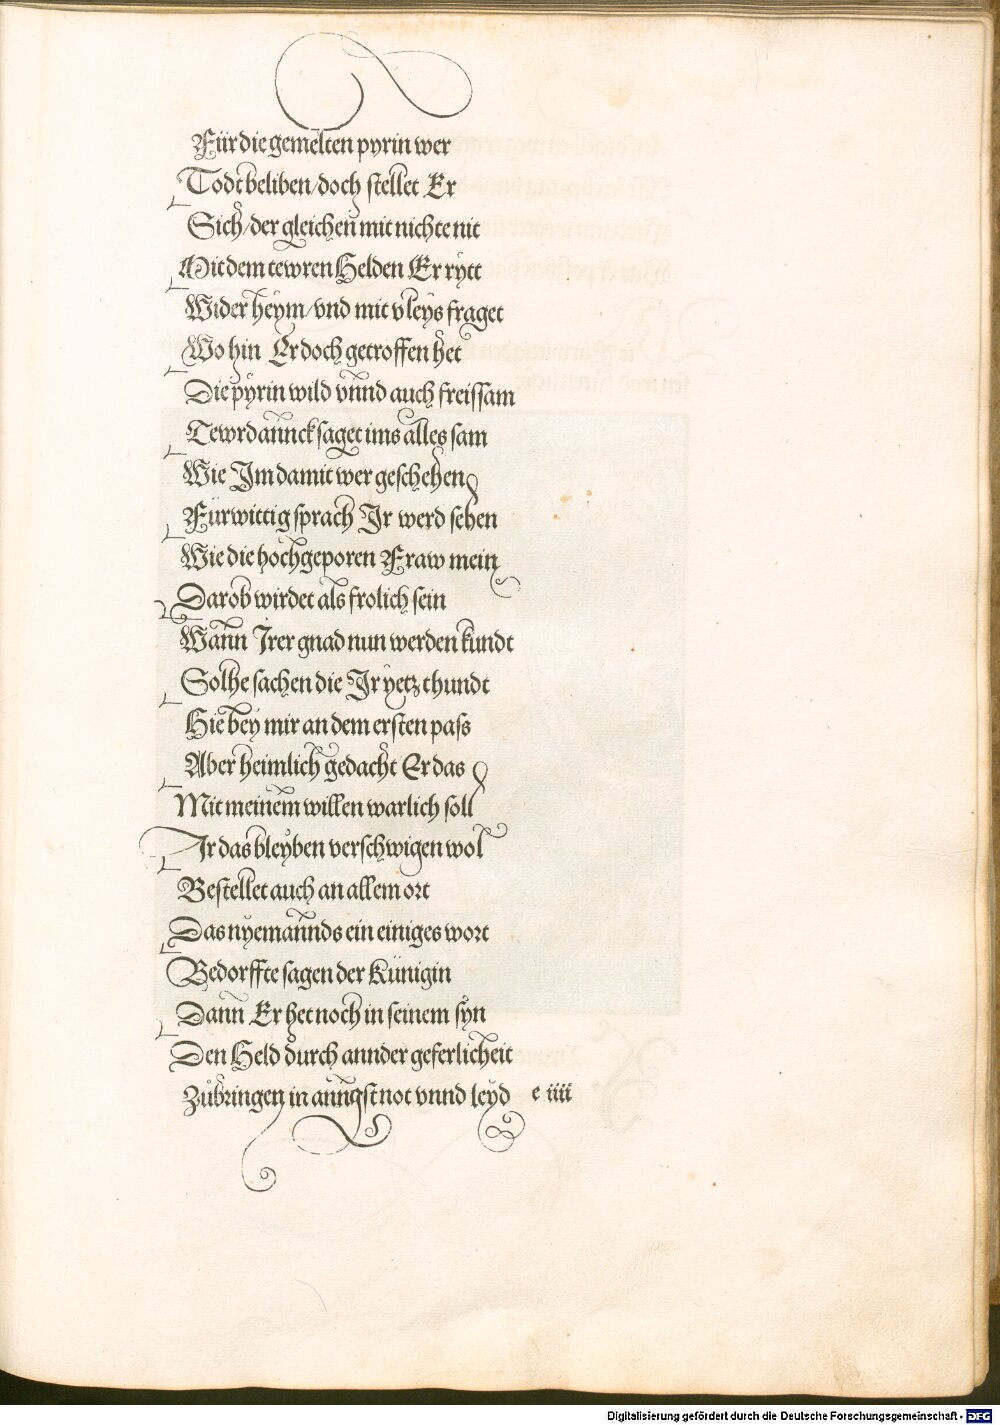 Für die gemelten pyrin wer
Todt beliben/doch stellet Er
Sich/der gleichen mit nichte nit
Mit dem tewren Helden Er rytt
Wider heym/vnd mit vleys fraget
Wo hin Er doch getroffen het
Die pyrin wild vnnd auch freissam
Tewrdannck saget ims alles sam
Wie Im damit wer geschehen
Fürwittig sprach Ir werd sehen
Wie die hochgeporen Fraw mein
Darob wirdet als frolich sein
Wann Irer gnad nun werden kundt
Solhe sachen die Ir yetz thundt
Hie bey mir an dem ersten pass
Aber heimlich gedacht Er das
Mit meinem willen warlich soll
Ir das bleyben verschwigen wol
Bestellet auch an allem ort
Das nyemannds ein einiges wort
Bedorffte sagen der Künigin
Dann Er het noch in seinem syn
Den Held durch annder geferlicheit
Zůbringen in anngst not vnnd leyd e iiii
Digitalisierung gefördert durch die Deutsche Forschungsgemeinschaft - DFG